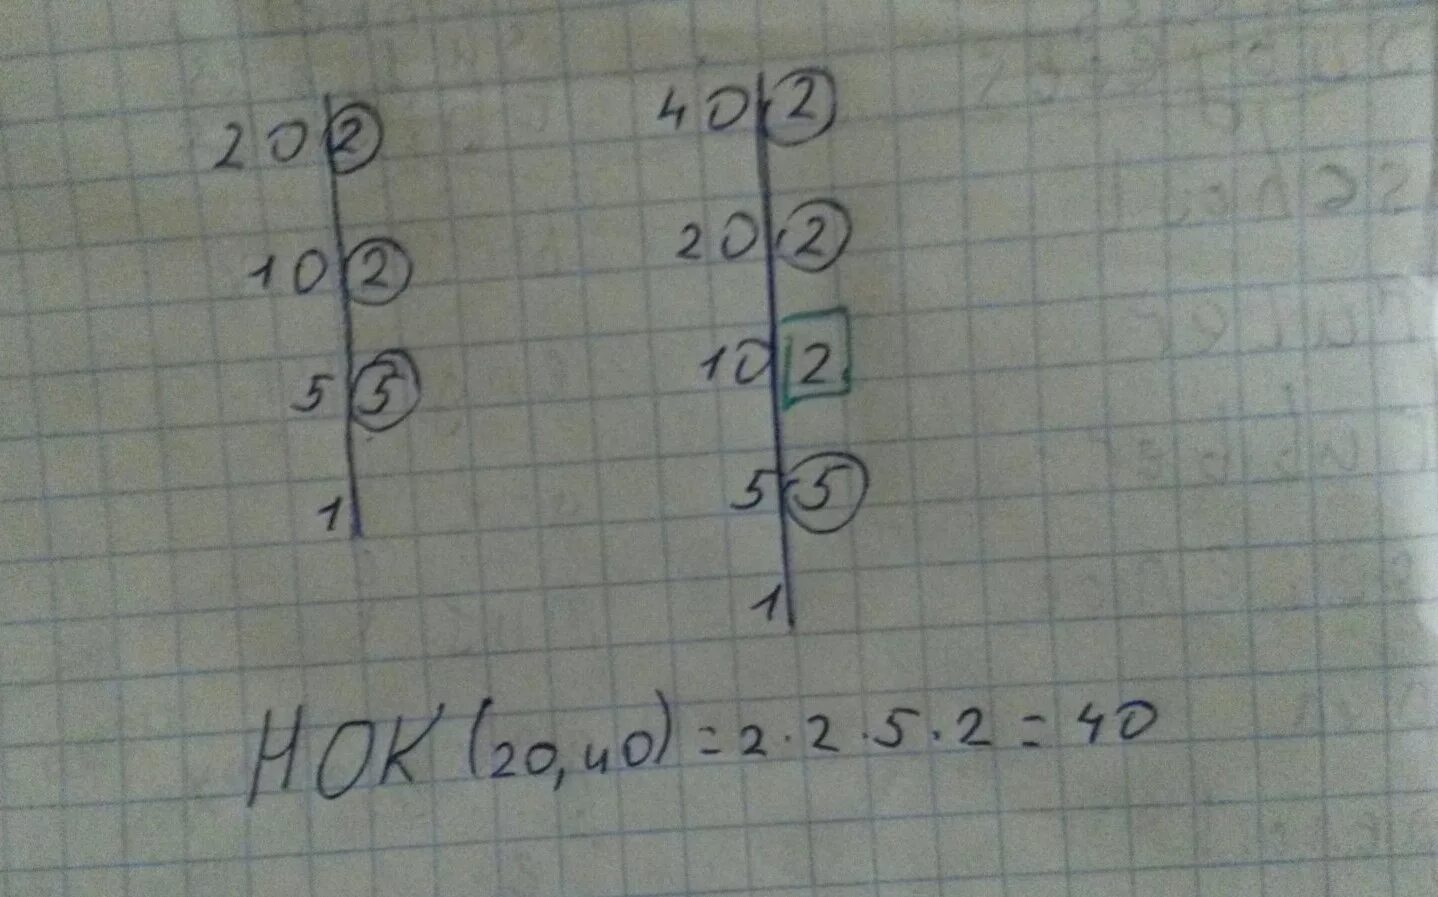 20 2
10 2
5 5
1
40 2
20 2
10 2
5 5
1
НОК (20,40) = 2·2·5·2 = 40